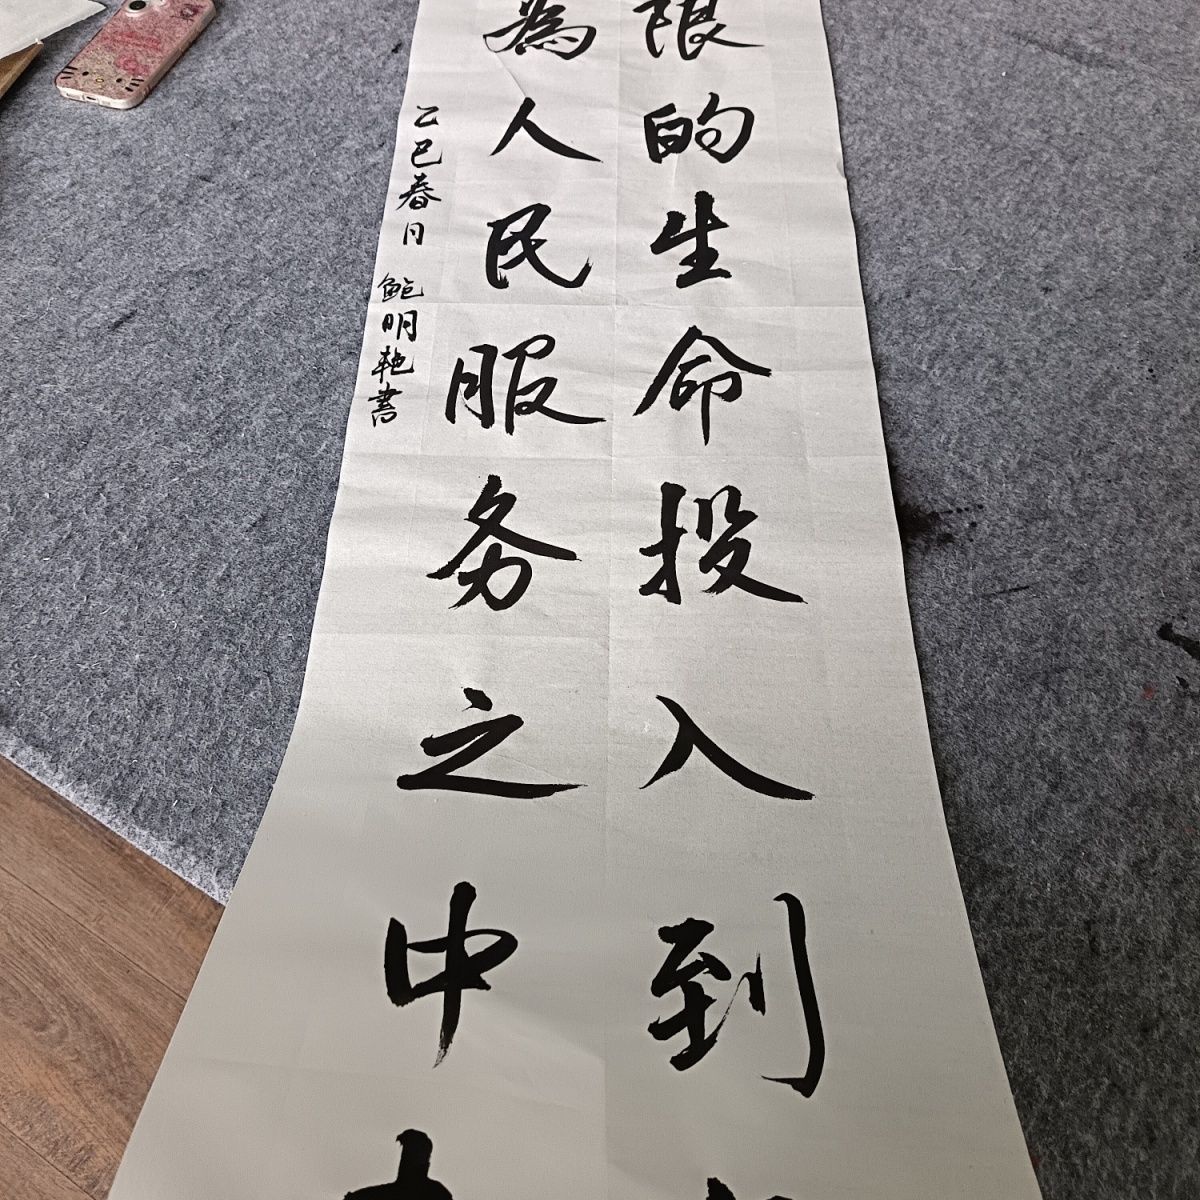 限的生命投入到
為人民服务之中
乙巳春日 鲍明艳書